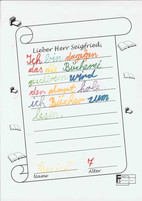 Lieber Herr Seigfried,
Ich bin dagegen
das die Bücherei
wird
den damit hole
ich Bücher zum
lesen.
7
Name Alter